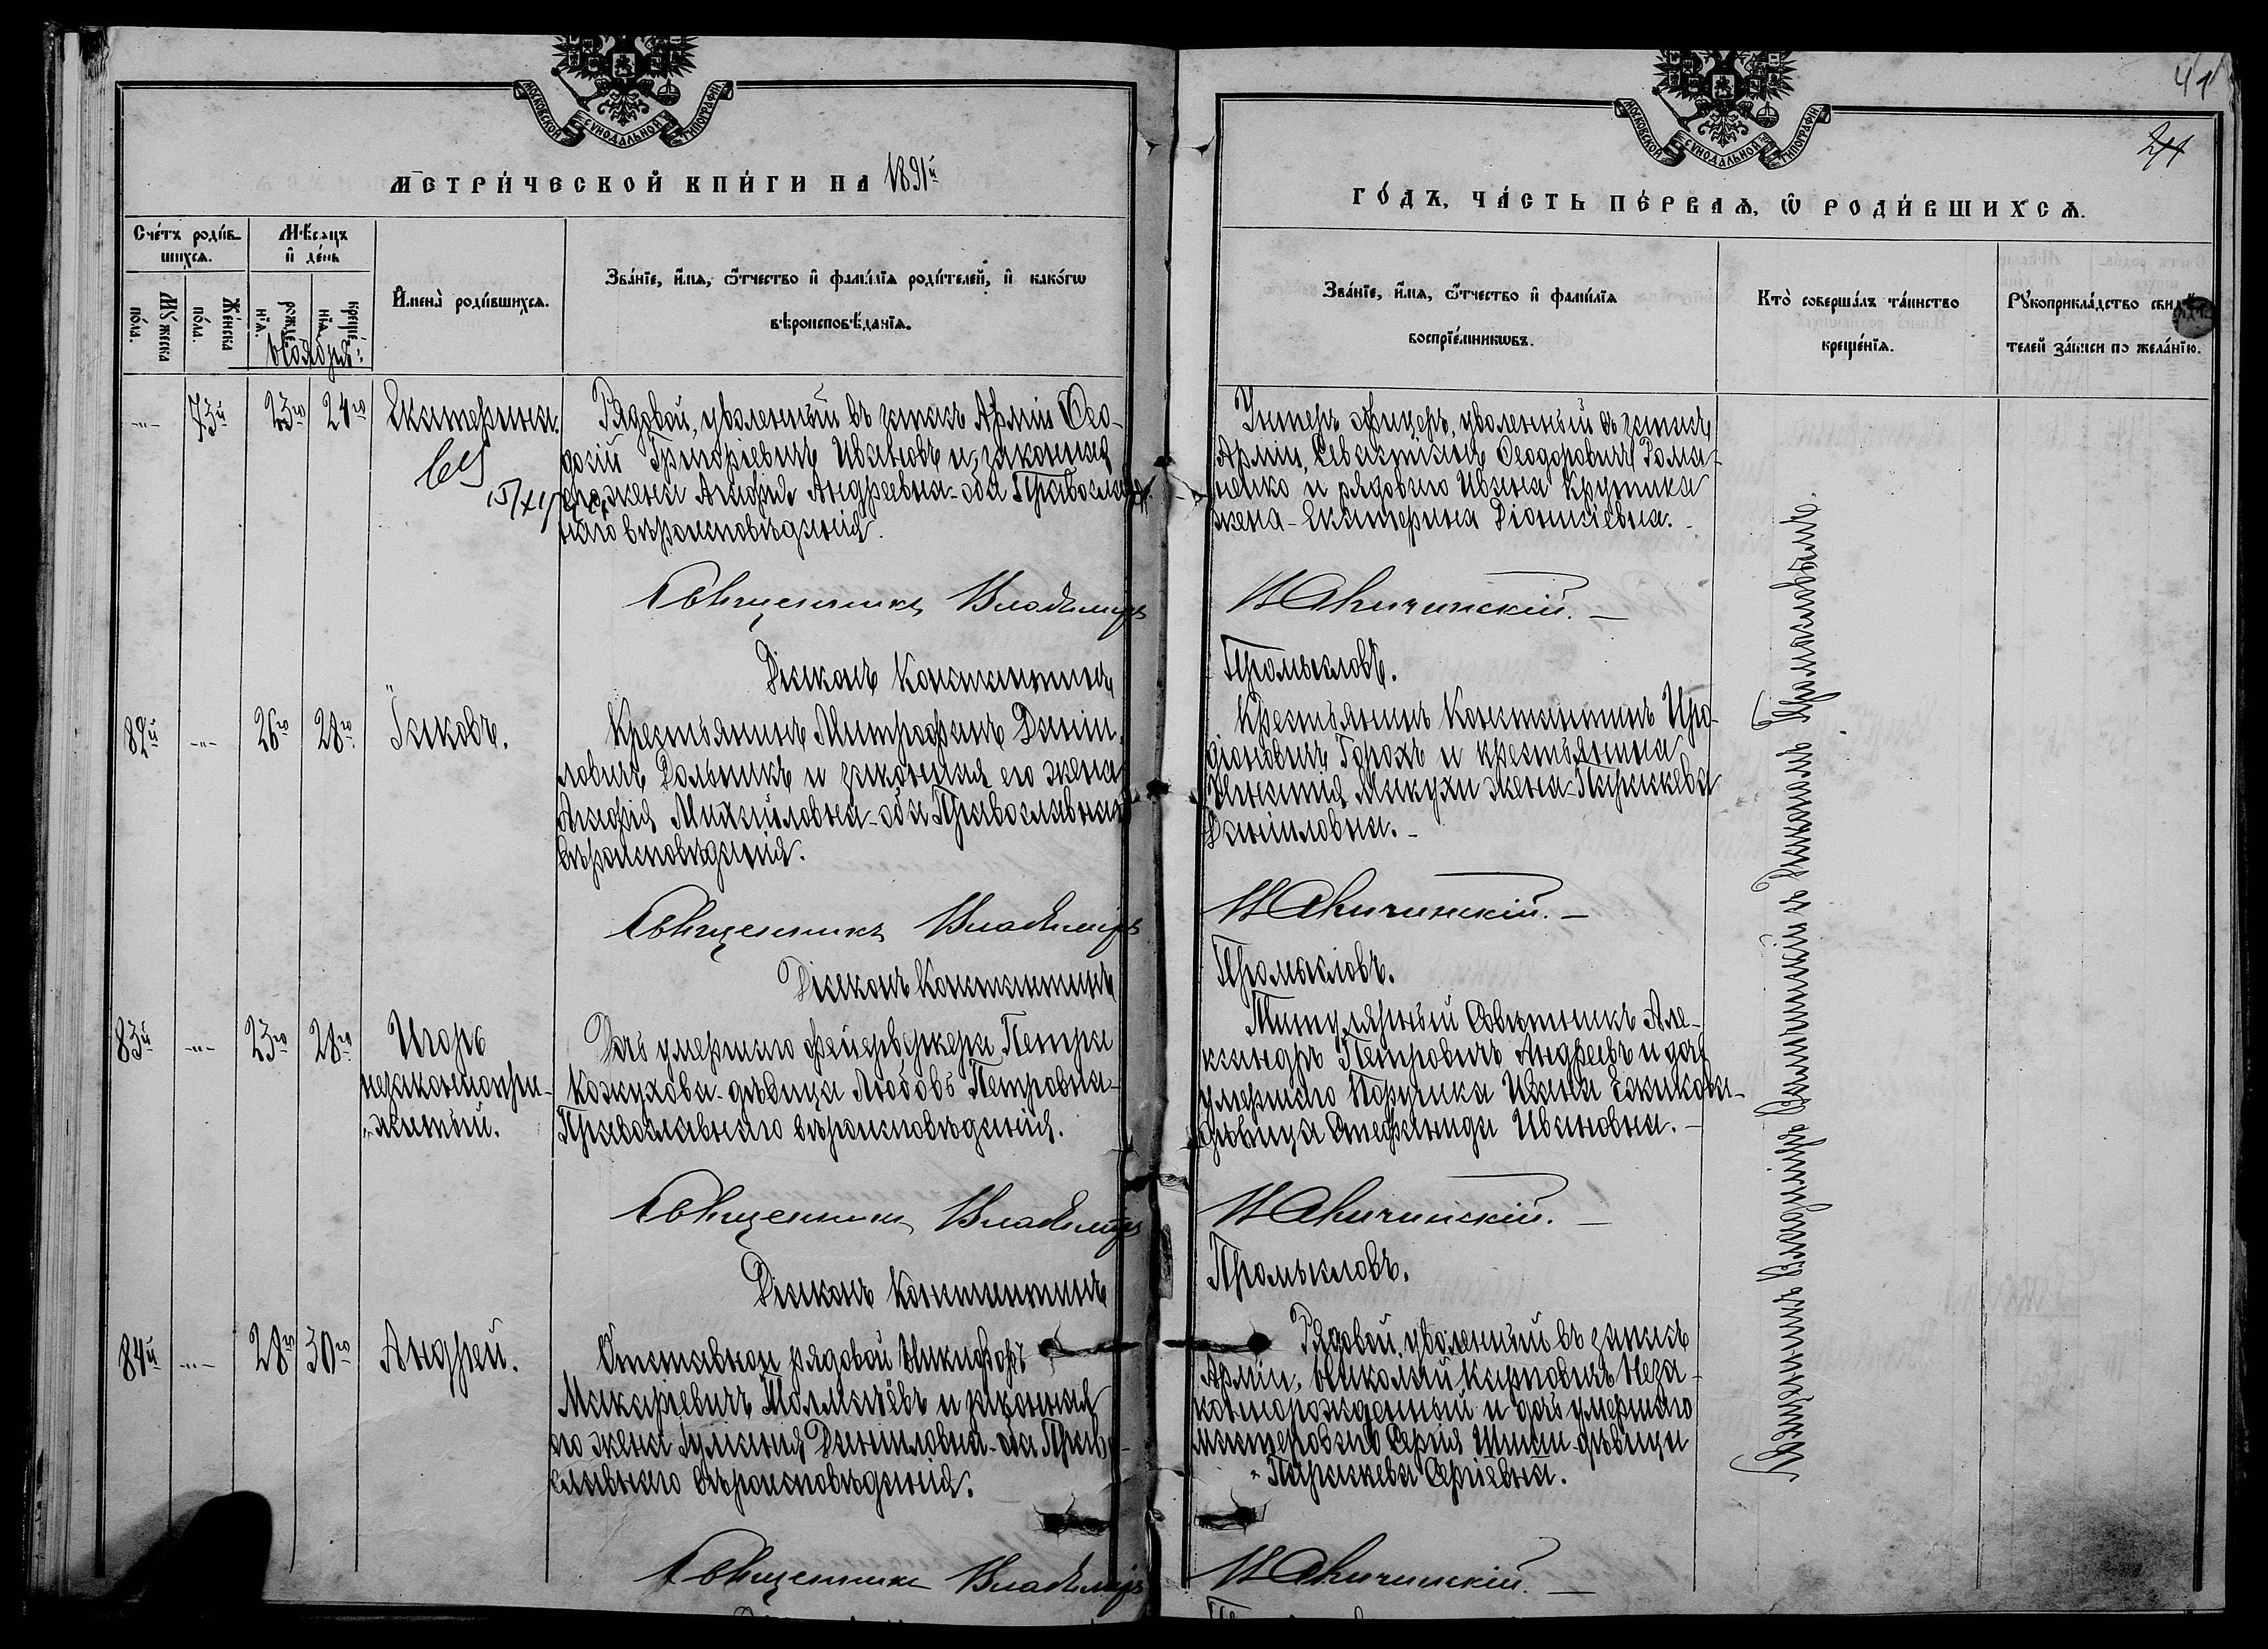 МОСКОВСКОЙ СѴНОДАЛЬНОЙ ТИПОГРАФІИ
МЕТРИ́ЧЕСКОЙ КНИ́ГИ НА 1891й
Сче́тъ роди́вшихся.
Мѣ́сяцъ и҆ де́нь
Му́жеска по́ла.
Же́нска по́ла.
рожде́нїѧ.
креще́нїѧ.
Ноября:
И҆мена̀ роди́вшихсѧ.
Зва́нїе, и҆́мѧ, ѻ҆́тчество и҆ фами́лїѧ роди́телей, и҆ како́гѡ
вѣроисповѣ́данїѧ.
-"- 73й 23го 24го Екатерина.
Рядовой, уволенный въ запасъ Арміи Ѳео-
досій Григоріевичъ Ивановъ и законная
его жена Агафія Андреевна - оба Православ-
наго вѣроисповѣданія.
Священникъ Владиміръ
Діаконъ Константинъ
82й -"- 26го 28го Іаковъ.
Крестьянинъ Митрофанъ Даніи-
ловичъ Дольникъ и законная его жена
Агафія Михайловна - оба Православнаго
вѣроисповѣданія.
Священникъ Владиміръ
Діаконъ Константинъ
83й -"- 23го 28го Игорь
незаконнопри-
житый.
Дочь умершаго фейерверкера Петра
Кожухова - дѣвица Любовь Петровна -
Православнаго вѣроисповѣданія.
Священникъ Владиміръ
Діаконъ Константинъ
84й -"- 28го 30го Андрей.
Отставной рядовой Никифоръ
Макаріевичъ Толмачёвъ и законная
его жена Іуліанія Даниловна - оба Право-
славнаго вѣроисповѣданія.
Священникъ Владиміръ
41
МОСКОВСКОЙ СѴНОДАЛЬНОЙ ТИПОГРАФІИ
ГО́ДЪ, ЧА́СТЬ ПЕ́РВАѦ, Ѽ РОДИ́ВШИХСѦ.
Зва́нїе, и҆́мѧ, ѻ҆́тчество и҆ фами́лїѧ
воспрїе́мникѡвъ.
Кто̀ соверша́лъ та́инство
креще́нїѧ.
Рꙋкоприкла́дство свидѣ́-
телей за́писи по жела́нїю.
Унтеръ офицеръ, уволенный въ запасъ
Арміи, Севастіанъ Ѳеодоровичъ Рома-
ненко и рядоваго Ивана Крутика
жена - Екатерина Діонисіевна. -
В Авичинскій. -
Промысловъ.
Крестьянинъ Константинъ Иро-
діоновичъ Горохъ и крестьянина
Игнатія Макухи жена - Параскева
Даніиловна. -
В Авичинскій. -
Промысловъ.
Титулярный Совѣтникъ Але-
ксандръ Петровичъ Андреевъ и дочь
умершаго Поручика Ивана Езикова -
дѣвица Стефанида Ивановна. -
В Авичинскій. -
Промысловъ.
Рядовой, уволенный въ запасъ
Арміи, Николай Карповичъ Неза-
коннорожденный и дочь умершаго
мастероваго Сергія дѣвица
Параскева Сергіевна.
В Авичинскій. -
Священникъ Владиміръ съ Діакономъ Промысловымъ.